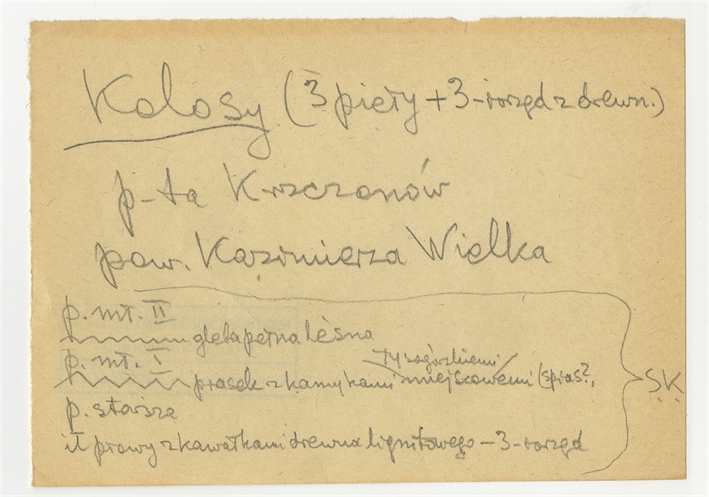 Kolosy (3 piety + 3-rzęd z drewn.)
p-ta Krzczonów
pow. Kazimierza Wielka
p. mł. II
gleba pełna leśna
p. mł. I
piasek z kamykami miejscowemi (spias?,
p. starsza
ił prawy z kawałkami drewna lignitowego – 3-rzęd
S.K.